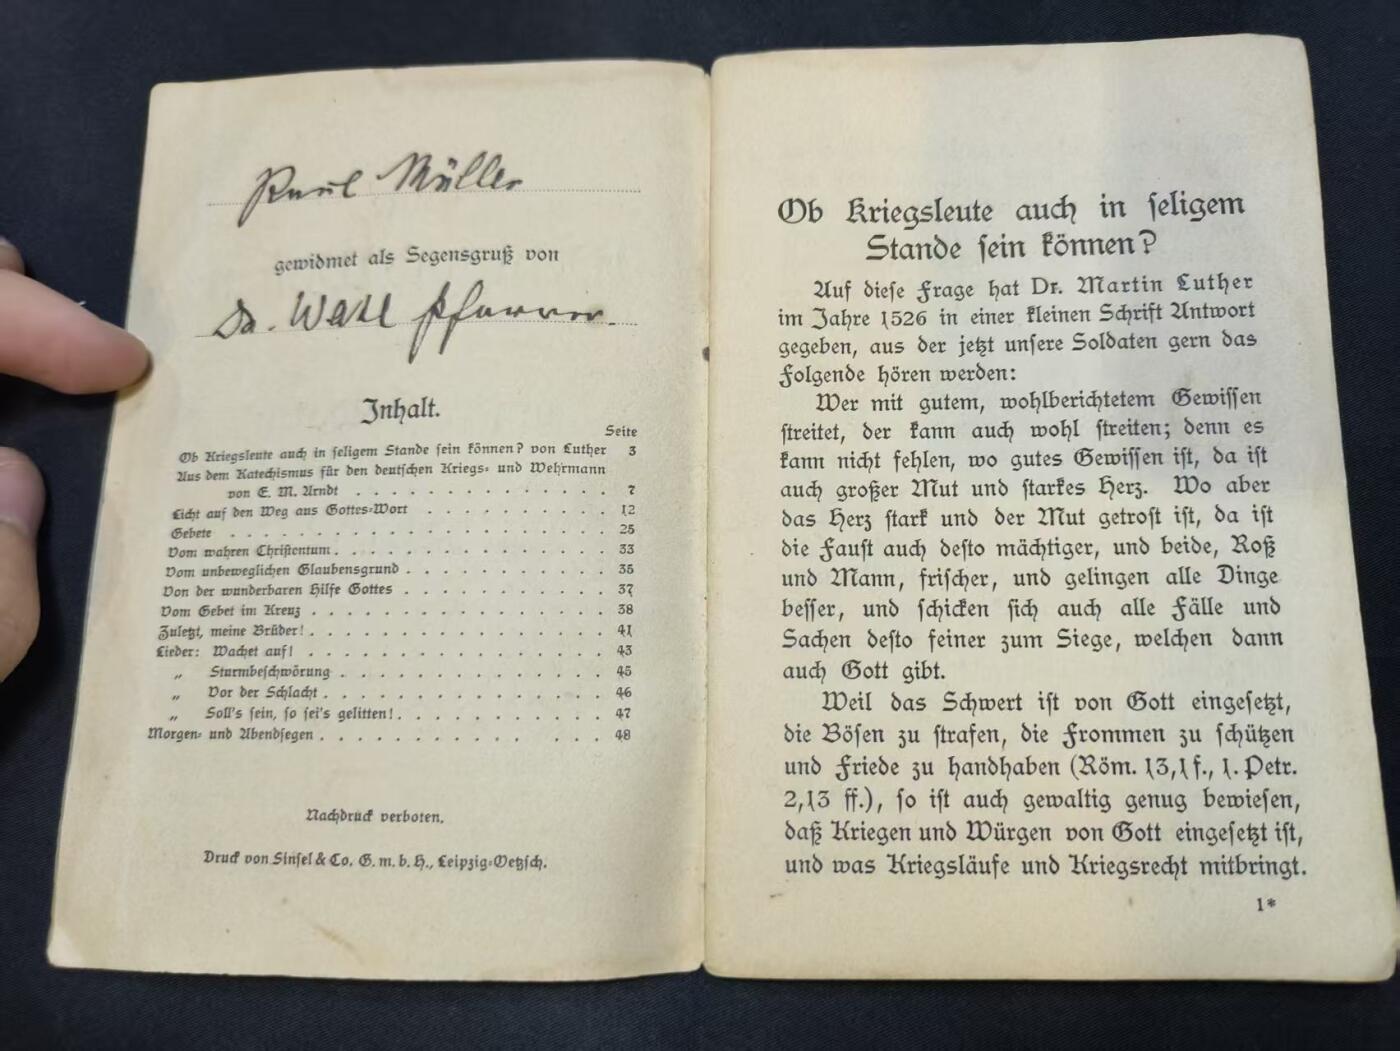 Paul Müller
gewidmet als Segensgruß von
Dr. Wahl Pfarrer.
Inhalt.
Seite
Ob Kriegsleute auch in seligem Stande sein können? von Luther 3
Aus dem Katechismus für den deutschen Kriegs- und Wehrmann
von E. M. Arndt . . . . . . . . . . . . . 7
Licht auf den Weg aus Gottes-Wort . . . . . . . . . 12
Gebete . . . . . . . . . . . . . . . . . . 25
Vom wahren Christentum . . . . . . . . . . . . . 33
Vom unbeweglichen Glaubensgrund . . . . . . . . . . 35
Von der wunderbaren Hilfe Gottes . . . . . . . . . . 37
Vom Gebet im Kreuz . . . . . . . . . . . . . . 38
Zuletzt, meine Brüder! . . . . . . . . . . . . . . 41
Lieder: Wachet auf! . . . . . . . . . . . . . . 43
„ Sturmbeschwörung . . . . . . . . . . . . . 45
„ Vor der Schlacht . . . . . . . . . . . . . 46
„ Soll's sein, so sei's gelitten! . . . . . . . . . . 47
Morgen- und Abendsegen . . . . . . . . . . . . . 48
Nachdruck verboten.
Druck von Sinsel & Co. G. m. b. H., Leipzig-Oetzsch.
Ob Kriegsleute auch in seligem
Stande sein können?
Auf diese Frage hat Dr. Martin Luther
im Jahre 1526 in einer kleinen Schrift Antwort
gegeben, aus der jetzt unsere Soldaten gern das
Folgende hören werden:
Wer mit gutem, wohlberichtetem Gewissen
streitet, der kann auch wohl streiten; denn es
kann nicht fehlen, wo gutes Gewissen ist, da ist
auch großer Mut und starkes Herz. Wo aber
das Herz stark und der Mut getrost ist, da ist
die Faust auch desto mächtiger, und beide, Roß
und Mann, frischer, und gelingen alle Dinge
besser, und schicken sich auch alle Fälle und
Sachen desto feiner zum Siege, welchen dann
auch Gott gibt.
Weil das Schwert ist von Gott eingesetzt,
die Bösen zu strafen, die Frommen zu schützen
und Friede zu handhaben (Röm. 13,1 f., 1. Petr.
2,13 ff.), so ist auch gewaltig genug bewiesen,
daß Kriegen und Würgen von Gott eingesetzt ist,
und was Kriegsläufe und Kriegsrecht mitbringt.
1*